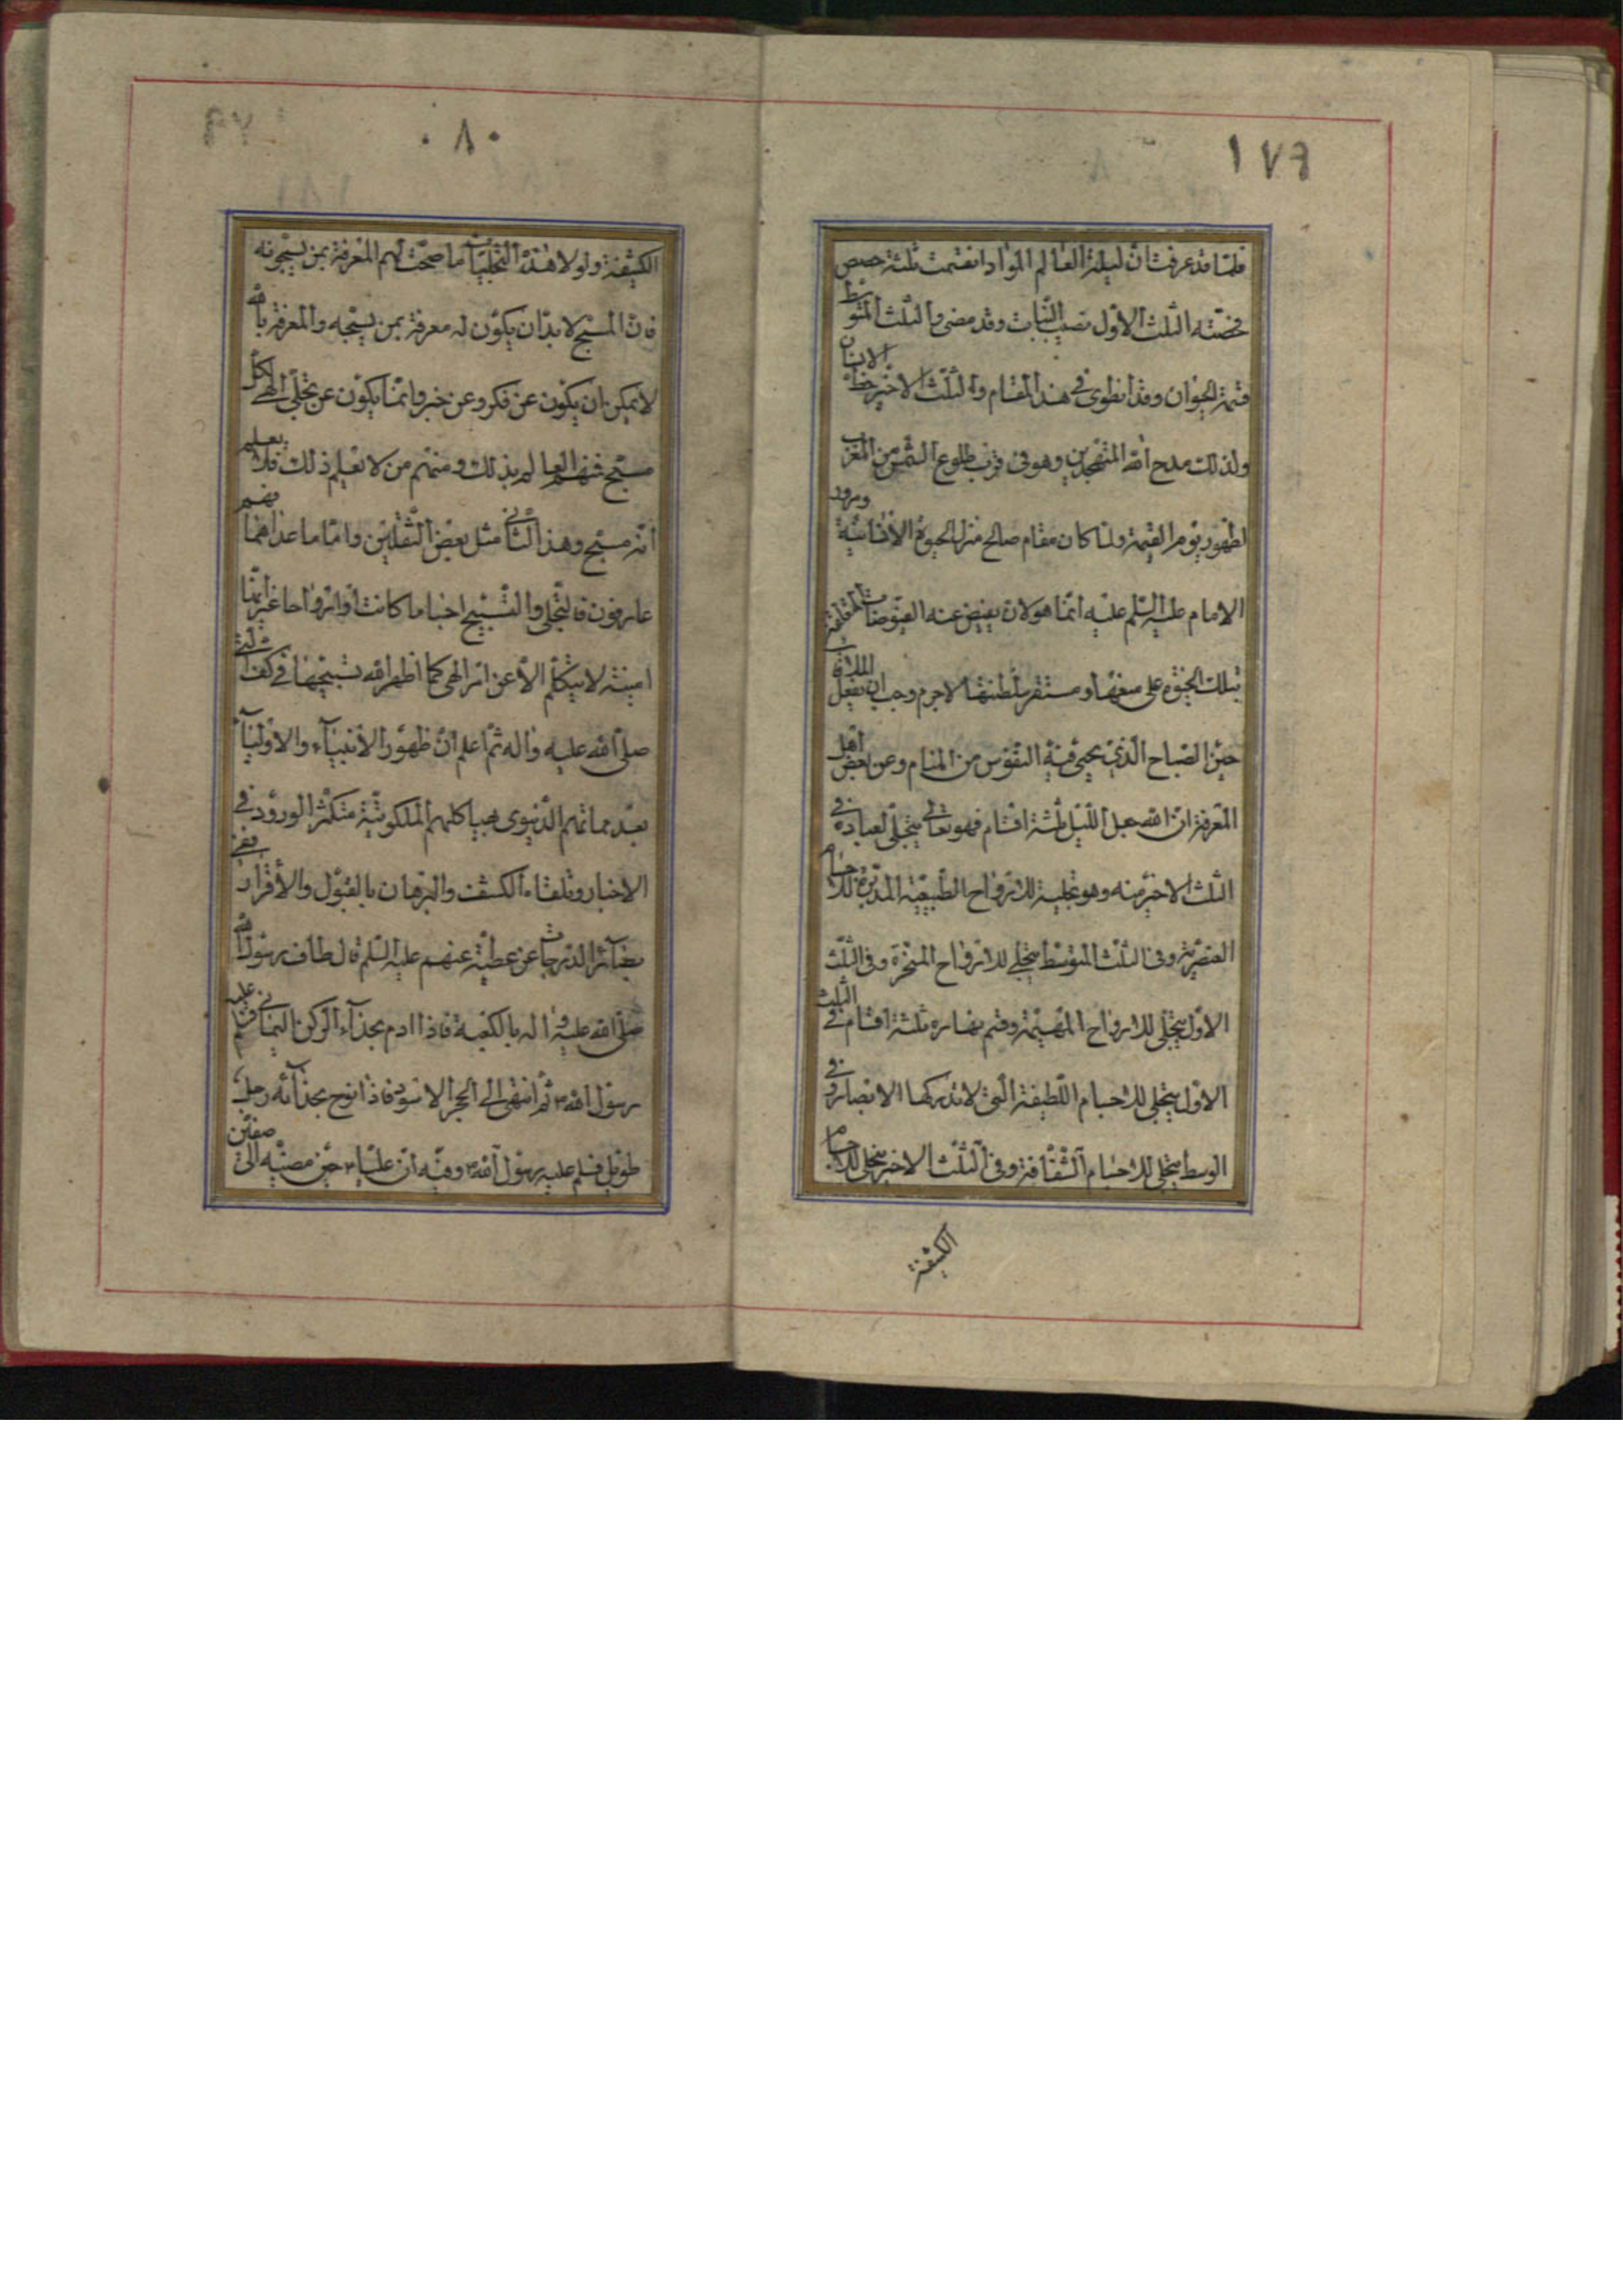 ١٧٩
فلما قد عرفت ان ليلة العالم المواد انقسمت ثلثة حصص
فحصته الثلث الاول نصيب النبات وقد مضى والثلث المتوسط
قسمة الحيوان وقد انطوى في هذا المقام والثلث الاخير حظ الانسان
ولذلك مدح الله المتهجدين وهو في قرب طلوع الشمس من المغرب
لظهور يوم القيمة ولما كان مقام صالح منزل الحيوة الانسانية
الامام عليه السلم عليه انما هو لان يفيض عنه الفيوضات
بتلك الحيوة على مستقر سلطنتها لاجرم وجب ان يفعل
حين الصباح الذي يحيى فيه النفوس من المنام وعن بعض اهل
المعرفة ان الله جعل الليل ثلثة اقسام فهو تعالى يتجلى لعباده في
الثلث الاخير منه وهو تجليه للارواح الطبيعية المدبرة للاجسام
العنصرية وفي الثلث المتوسط يتجلى للارواح المسخرة وفي الثلث
الاول يتجلى للارواح المهيمة وقسم نهاره ثلثة اقسام في الثلث
الاول يتجلى للاجسام اللطيفة التي لا تدركها الابصار وفي
الوسط يتجلى للاجسام الشفافة وفي الثلث الاخير يتجلى للاجسام
الكثيفة
٠٨٠
الكثيفة ولولا هذه التجليات ما صحت لهم المعرفة بمن يسبحونه
فان المسبح لابد ان يكون له معرفة بمن يسبحه والمعرفة بالله
لا يمكن ان يكون عن فكر وعن خبر وانما يكون عن تجلى الهي لكل
مسبح فمنهم العالم بذلك ومنهم من لا يعلم ذلك فلا يعلم
انه مسبح وهذا الثاني مثل بعض الثقلين واما ما عداهما فهم
عارفون فالتجلي والتسبيح اجساما كانت او ارواحا غير انها
امينة لا يتكلم الا عن امر الهي كما اظهر الله تسبيحها في كف
صلى الله عليه واله ثم اعلم ان ظهور الانبياء والاولياء
بعد مماتهم الدنيوى بهياكلهم الملكوتية متكثر الورود في
الاخبار وتلقاه الكشف والبرهان بالقبول والاقرار ففي
بصائر الدرجات عن عطية عنهم عليه السلم قال طاف رسول الله
صلى الله عليه واله بالكعبة فاذا ادم بحذاء الركن اليماني فسلم عليه
رسول الله ص ثم انتهى الى الحجر الاسود فاذا نوح بحذائه رجل
طويل فسلم عليه رسول الله ص وفيه ان عليا ع حين مضيه الى صفين